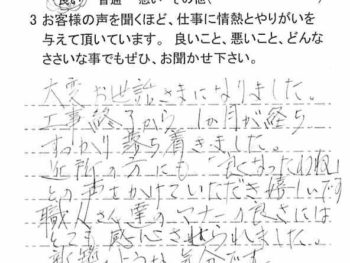 良い 普通 悪い その他(
3 お客様の声を聞くほど、仕事に情熱とやりがいを
与えて頂いています。 良いこと、悪いこと、どんな
ささいな事でもぜひ、お聞かせ下さい。
大変お世話さまになりました。
工事終了から1か月が経ち
すっかり落ち着きました。
近所の方にも「良くなったわね」
との声をかけていただき嬉しいです
職人さん達のマナーの良さには
とても感心させられました。
新築のような気分です。